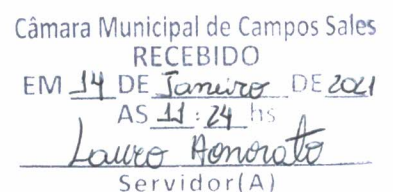 Câmara Municipal de Campos Sales
RECEBIDO
EM 14 DE Janeiro DE 2021
AS 11:24 hs
Lauro Honorato
Servidor(A)